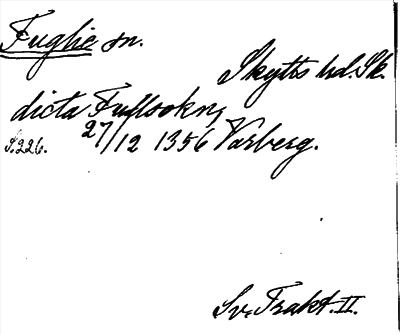 Fuglie sn.
Skytts hd. Sk.
dicta Fullsokn,
S.226. 27/12 1356 Varberg.
Sv. Trakt. II.